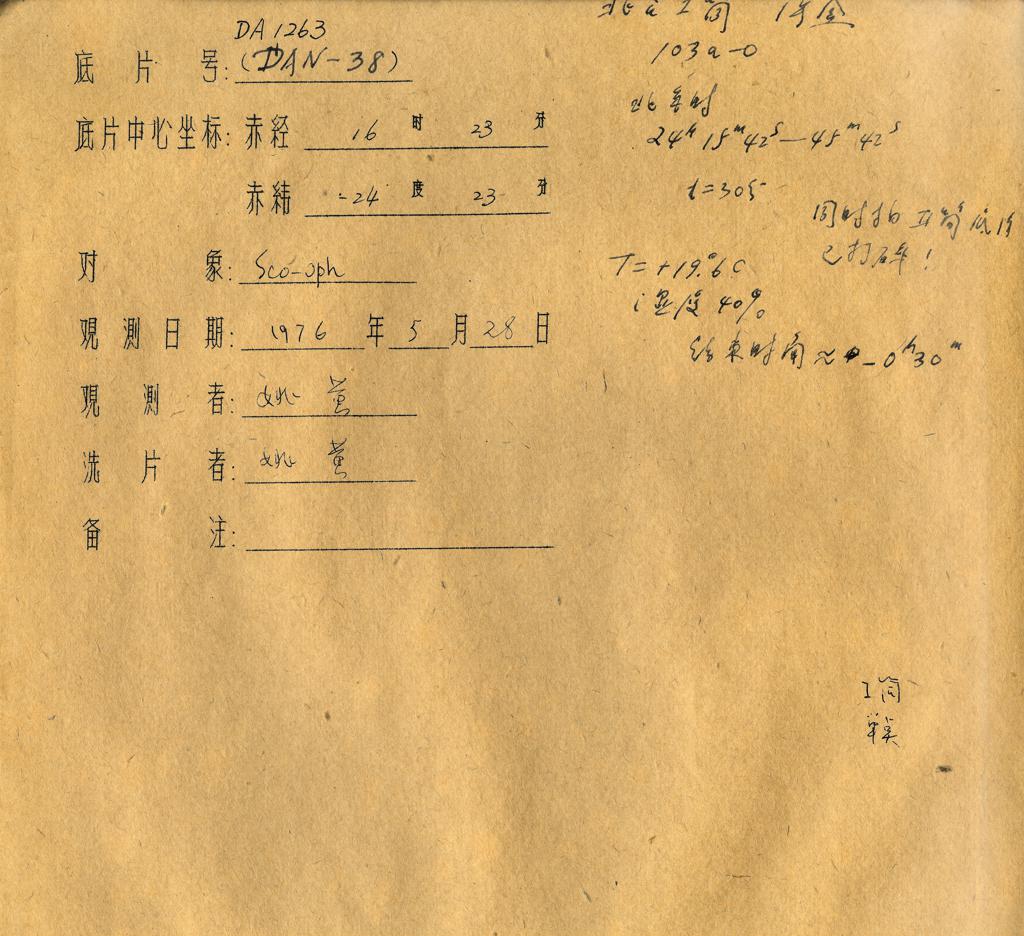 DA1263
底片号：(DAN-38)
底片中心坐标：赤经 16 时 23 分
赤緯 -24 度 23 分
对象：Sco-oph
观测日期：1976 年 5 月 28 日
观测者：姚
洗片者：姚
备注：
I筒
103a-O
北京时
24ʰ 15ᵐ 42ˢ — 45ᵐ 42ˢ
t=30分
同时拍 II筒底片
已打碎！
T=+19.°6C
湿度 40%
结束时角 ≈ -0ʰ30ᵐ
I筒